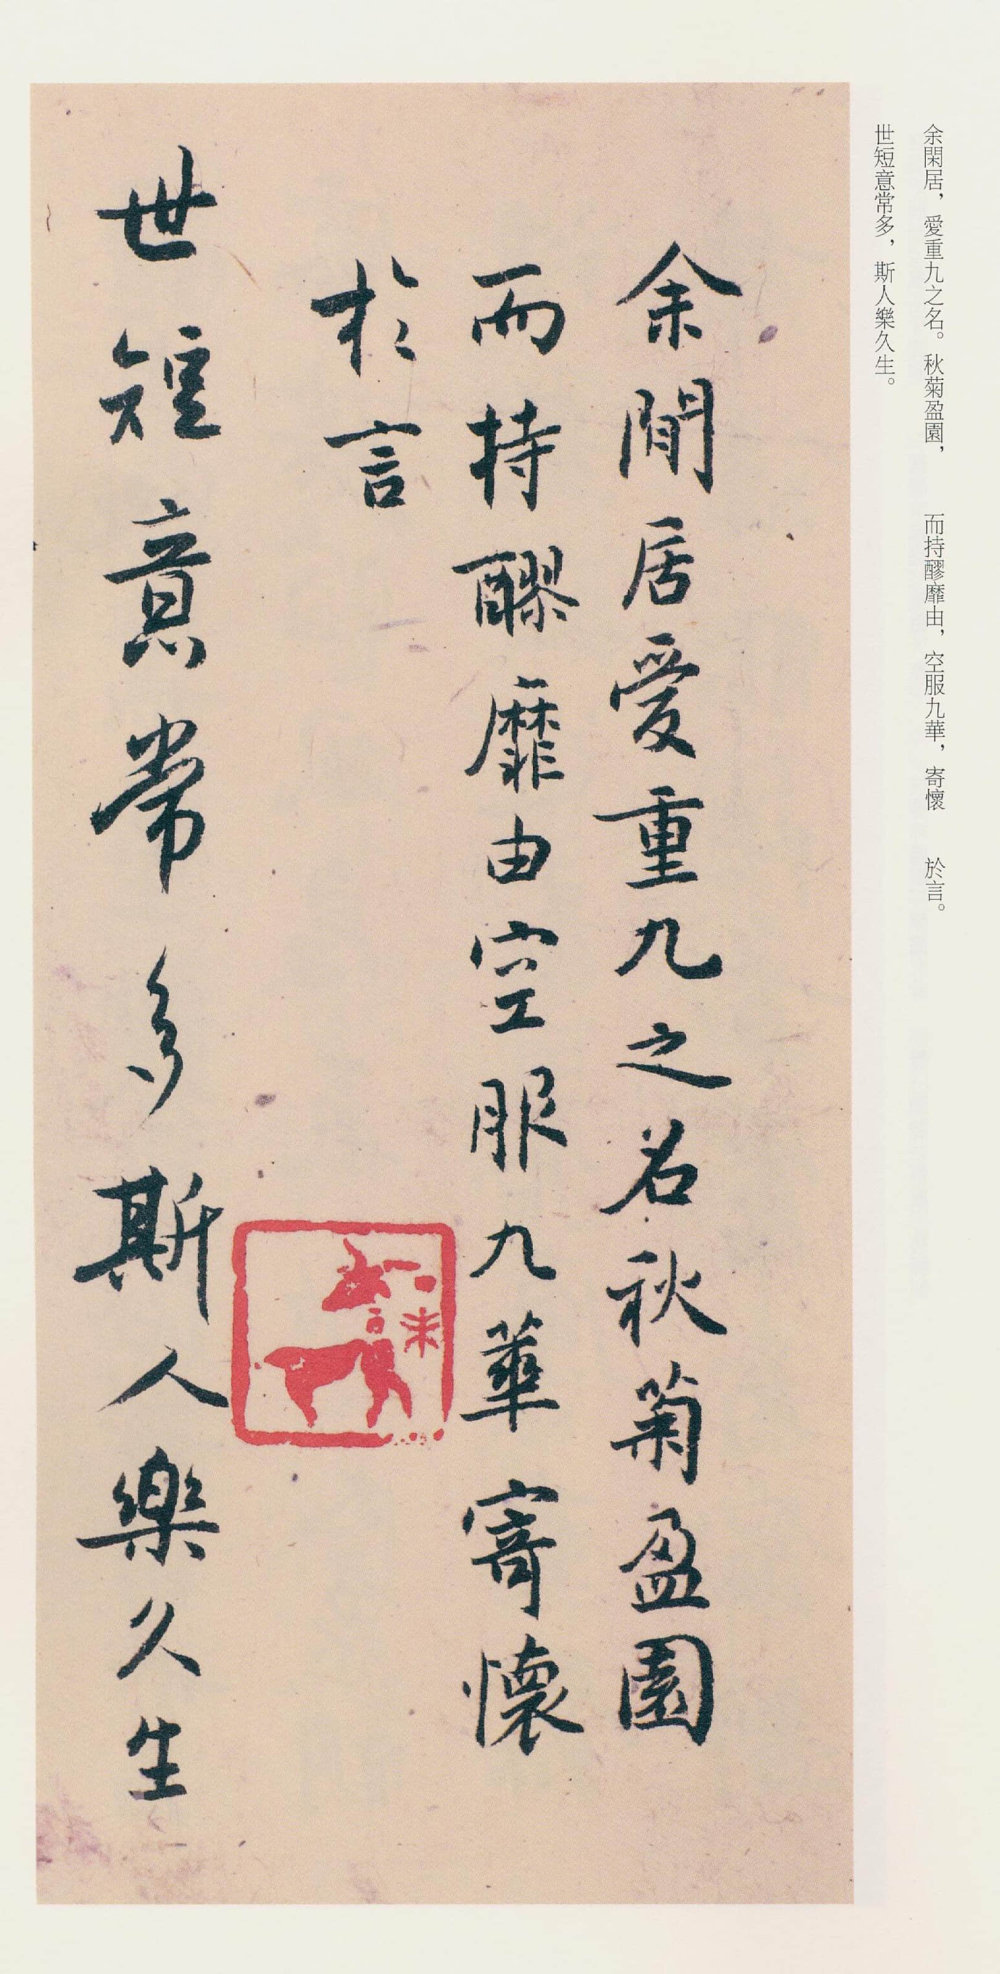 余閑居，愛重九之名。秋菊盈園，而持醪靡由，空服九華，寄懷於言。
世短意常多，斯人樂久生。
余閒居愛重九之名秋菊盈園
而持醪靡由空服九華寄懷
於言
世短意常多斯人樂久生